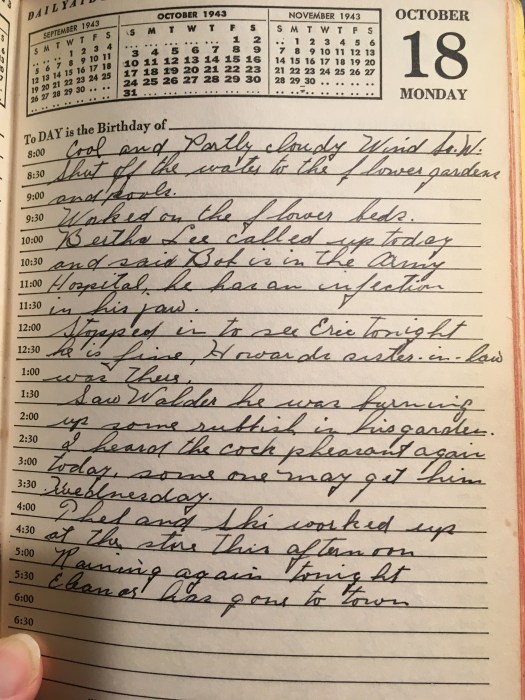 DAILYAIDE
SEPTEMBER 1943
S M T W T F S
1 2 3 4
5 6 7 8 9 10 11
12 13 14 15 16 17 18
19 20 21 22 23 24 25
26 27 28 29 30
OCTOBER 1943
S M T W T F S
1 2
3 4 5 6 7 8 9
10 11 12 13 14 15 16
17 18 19 20 21 22 23
24 25 26 27 28 29 30
31
NOVEMBER 1943
S M T W T F S
1 2 3 4 5 6
7 8 9 10 11 12 13
14 15 16 17 18 19 20
21 22 23 24 25 26 27
28 29 30
OCTOBER
18
MONDAY
To DAY is the Birthday of
8:00 Cool and Partly cloudy Wind So. W.
8:30 Shut off the water to the flower gardens
9:00 and pools.
9:30 Worked on the flower beds.
10:00 Bertha Lee called up today
10:30 and said Bob is in the Army
11:00 Hospital, he has an infection
11:30 in his jaw.
12:00 Stopped in to see Eric tonight
12:30 he is fine, Howards sister-in-law
1:00 was there.
1:30 Saw Walder he was burning
2:00 up some rubbish in his garden.
2:30 I heard the cock pheasant again
3:00 today, some one may get him
3:30 Wednesday.
4:00 Phel and Ski worked up
4:30 at the store this afternoon
5:00 Raining again tonight
5:30 Eleanor has gone to town
6:00
6:30